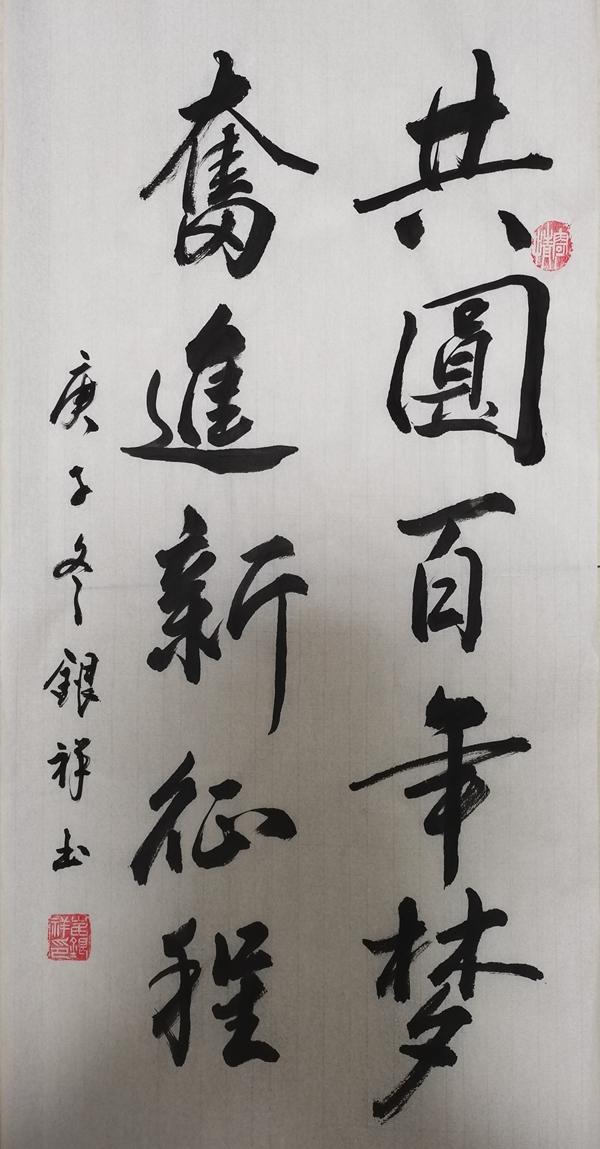 共圓百年梦
奮進新征程
庚子冬銀祥书